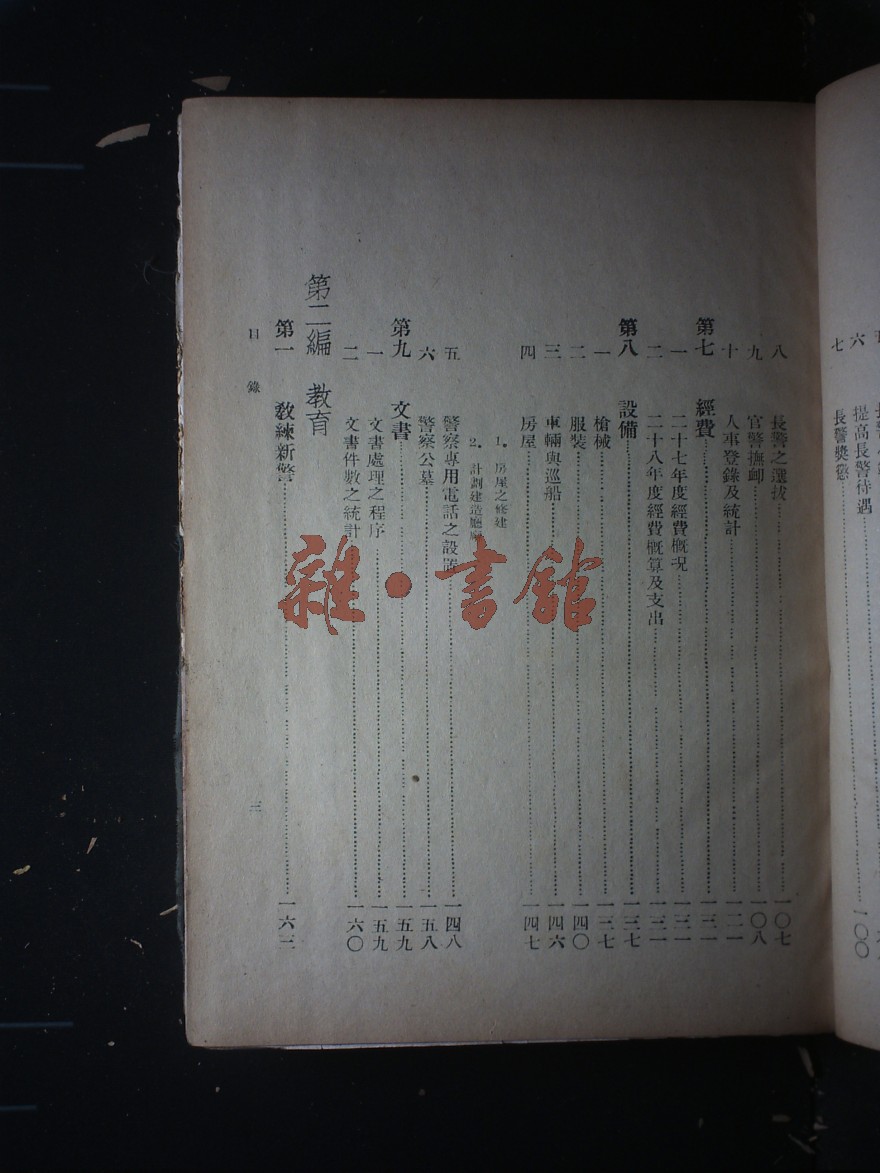 六 提高長警待遇 一〇〇
七 長警獎懲
八 長警之選拔 一〇七
九 官警撫卹 一〇八
十 人事登錄及統計 一二一
第七 經費 一三一
一 二十七年度經費概況 一三一
二 二十八年度經費概算及支出 一三一
第八 設備 一三七
一 槍械 一三七
二 服裝 一四〇
三 車輛與巡船 一四六
四 房屋 一四七
1. 房屋之修建
2. 計劃建造廳廨
五 警察專用電話之設置 一四八
六 警察公墓 一五八
第九 文書 一五九
一 文書處理之程序 一五九
二 文書件數之統計 一六〇
第二編 教育
第一 教練新警 一六三
目錄 三
雜·書館